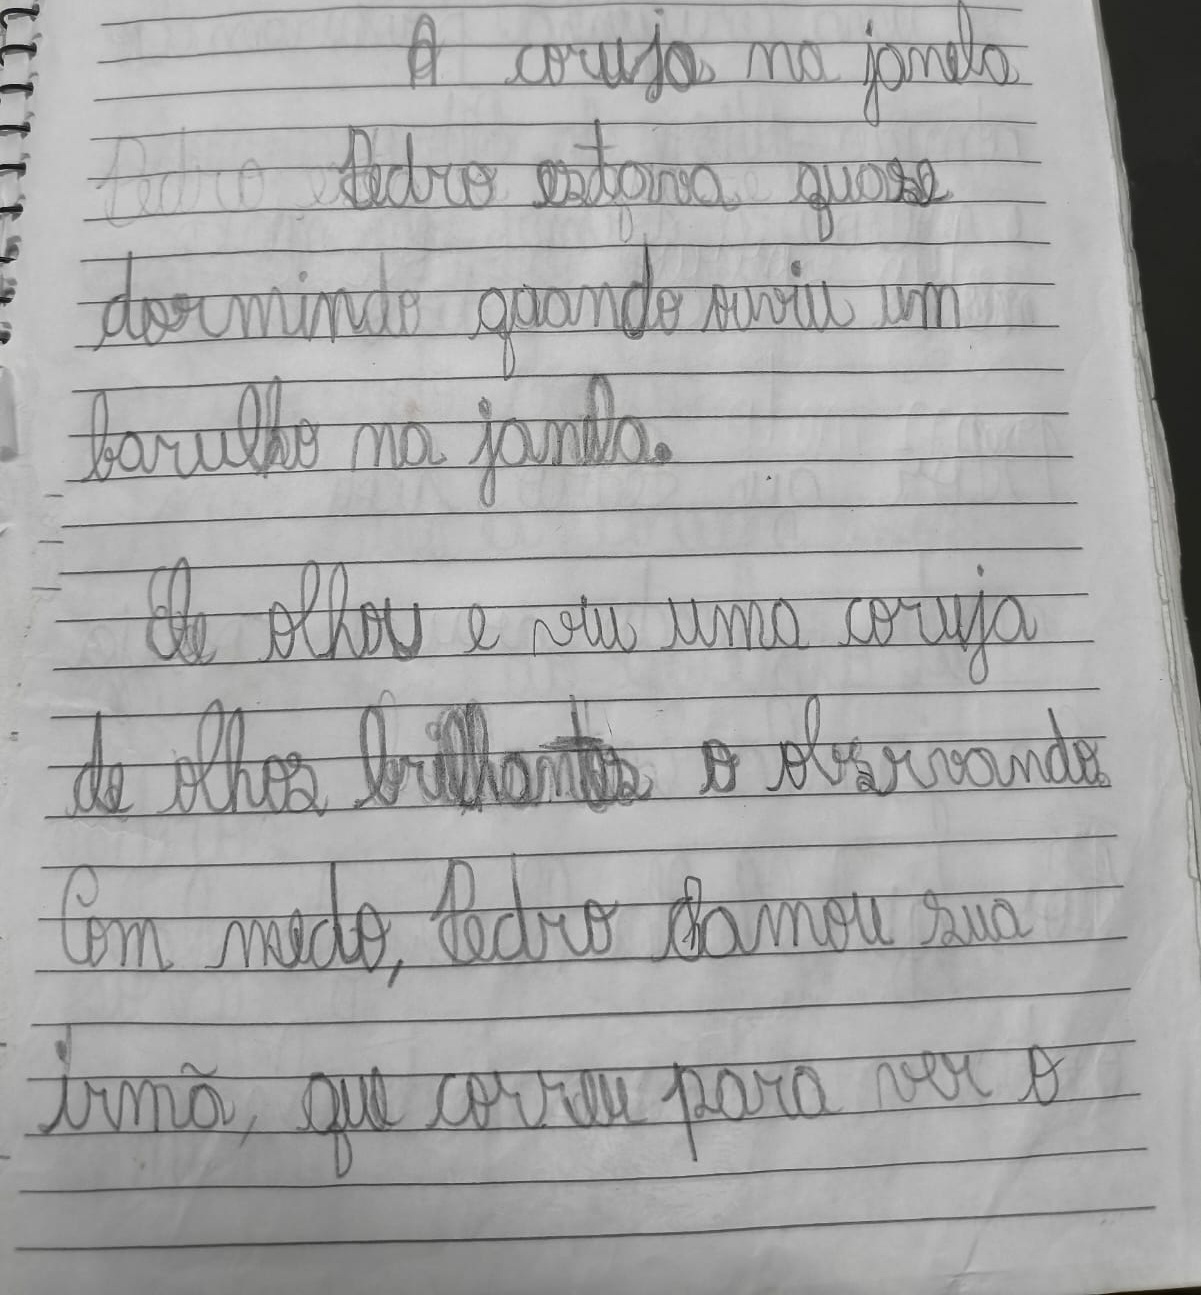 A coruja na janela
Pedro estava quase
dormindo quando ouviu um
barulho na janela.
Ele olhou e viu uma coruja
de olhos brilhantes o observando.
Com medo, Pedro chamou sua
irmã, que correu para ver o